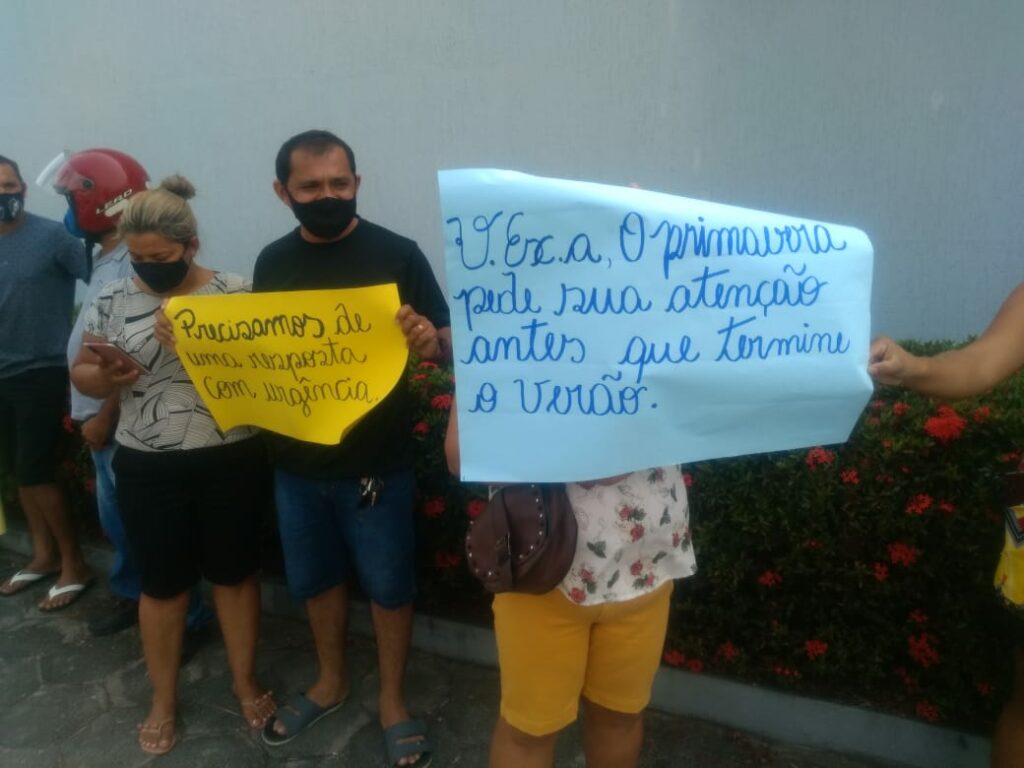 LEED
Precisamos de
uma resposta
com urgência.
V. Ex.a, O primavera
pede sua atenção
antes que termine
o Verão.